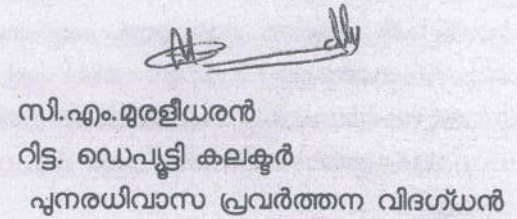 സി.എം.മുരളീധരൻ
റിട്ട. ഡെപ്യൂട്ടി കലക്ടർ
പുനരധിവാസ പ്രവർത്തന വിദഗ്ധൻ